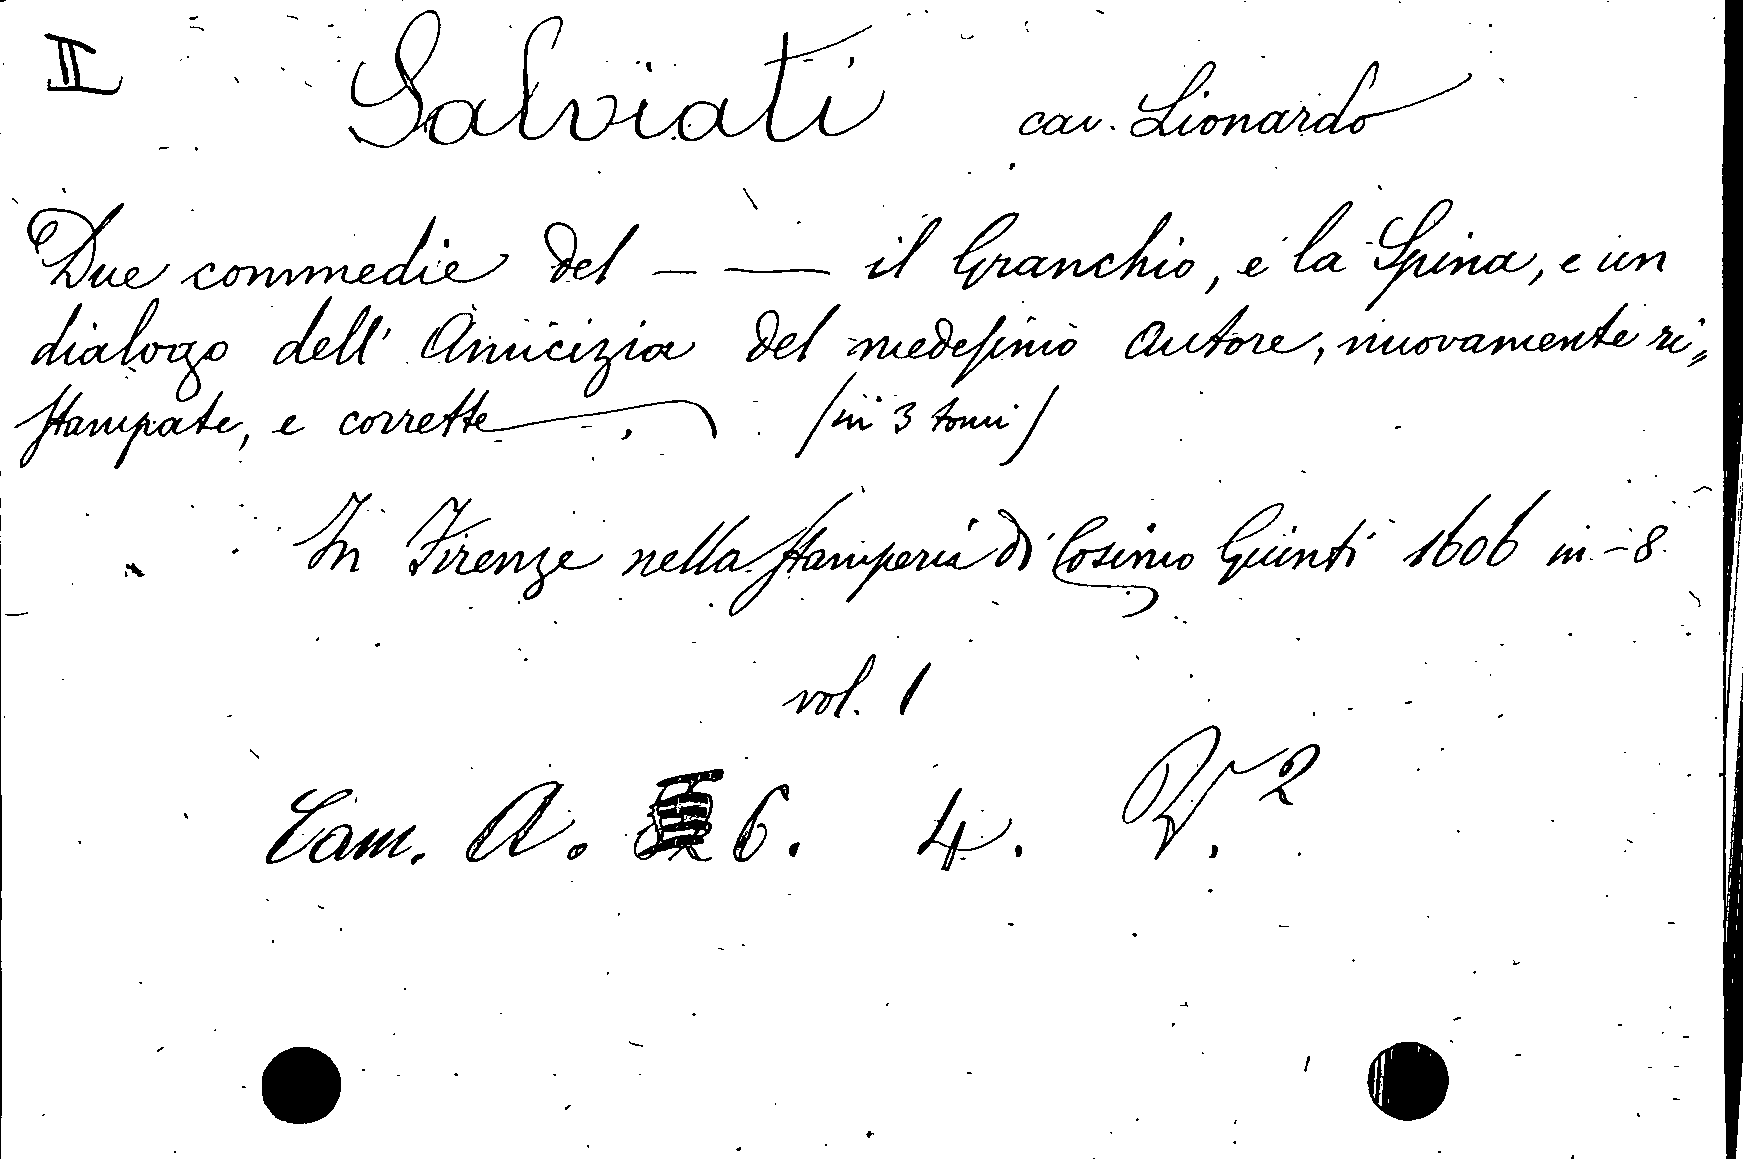 II Salviati cav. Lionardo
Due commedie del — — il Granchio, e la Spina, e un
dialogo dell' Amicizia del medesimo Autore, nuovamente ri„
stampate, e corrette. (in 3 tomi)
In Firenze nella stamperia di Cosimo Giunti 1606 in-8
vol. 1
Cam. A. 6. 4. 2